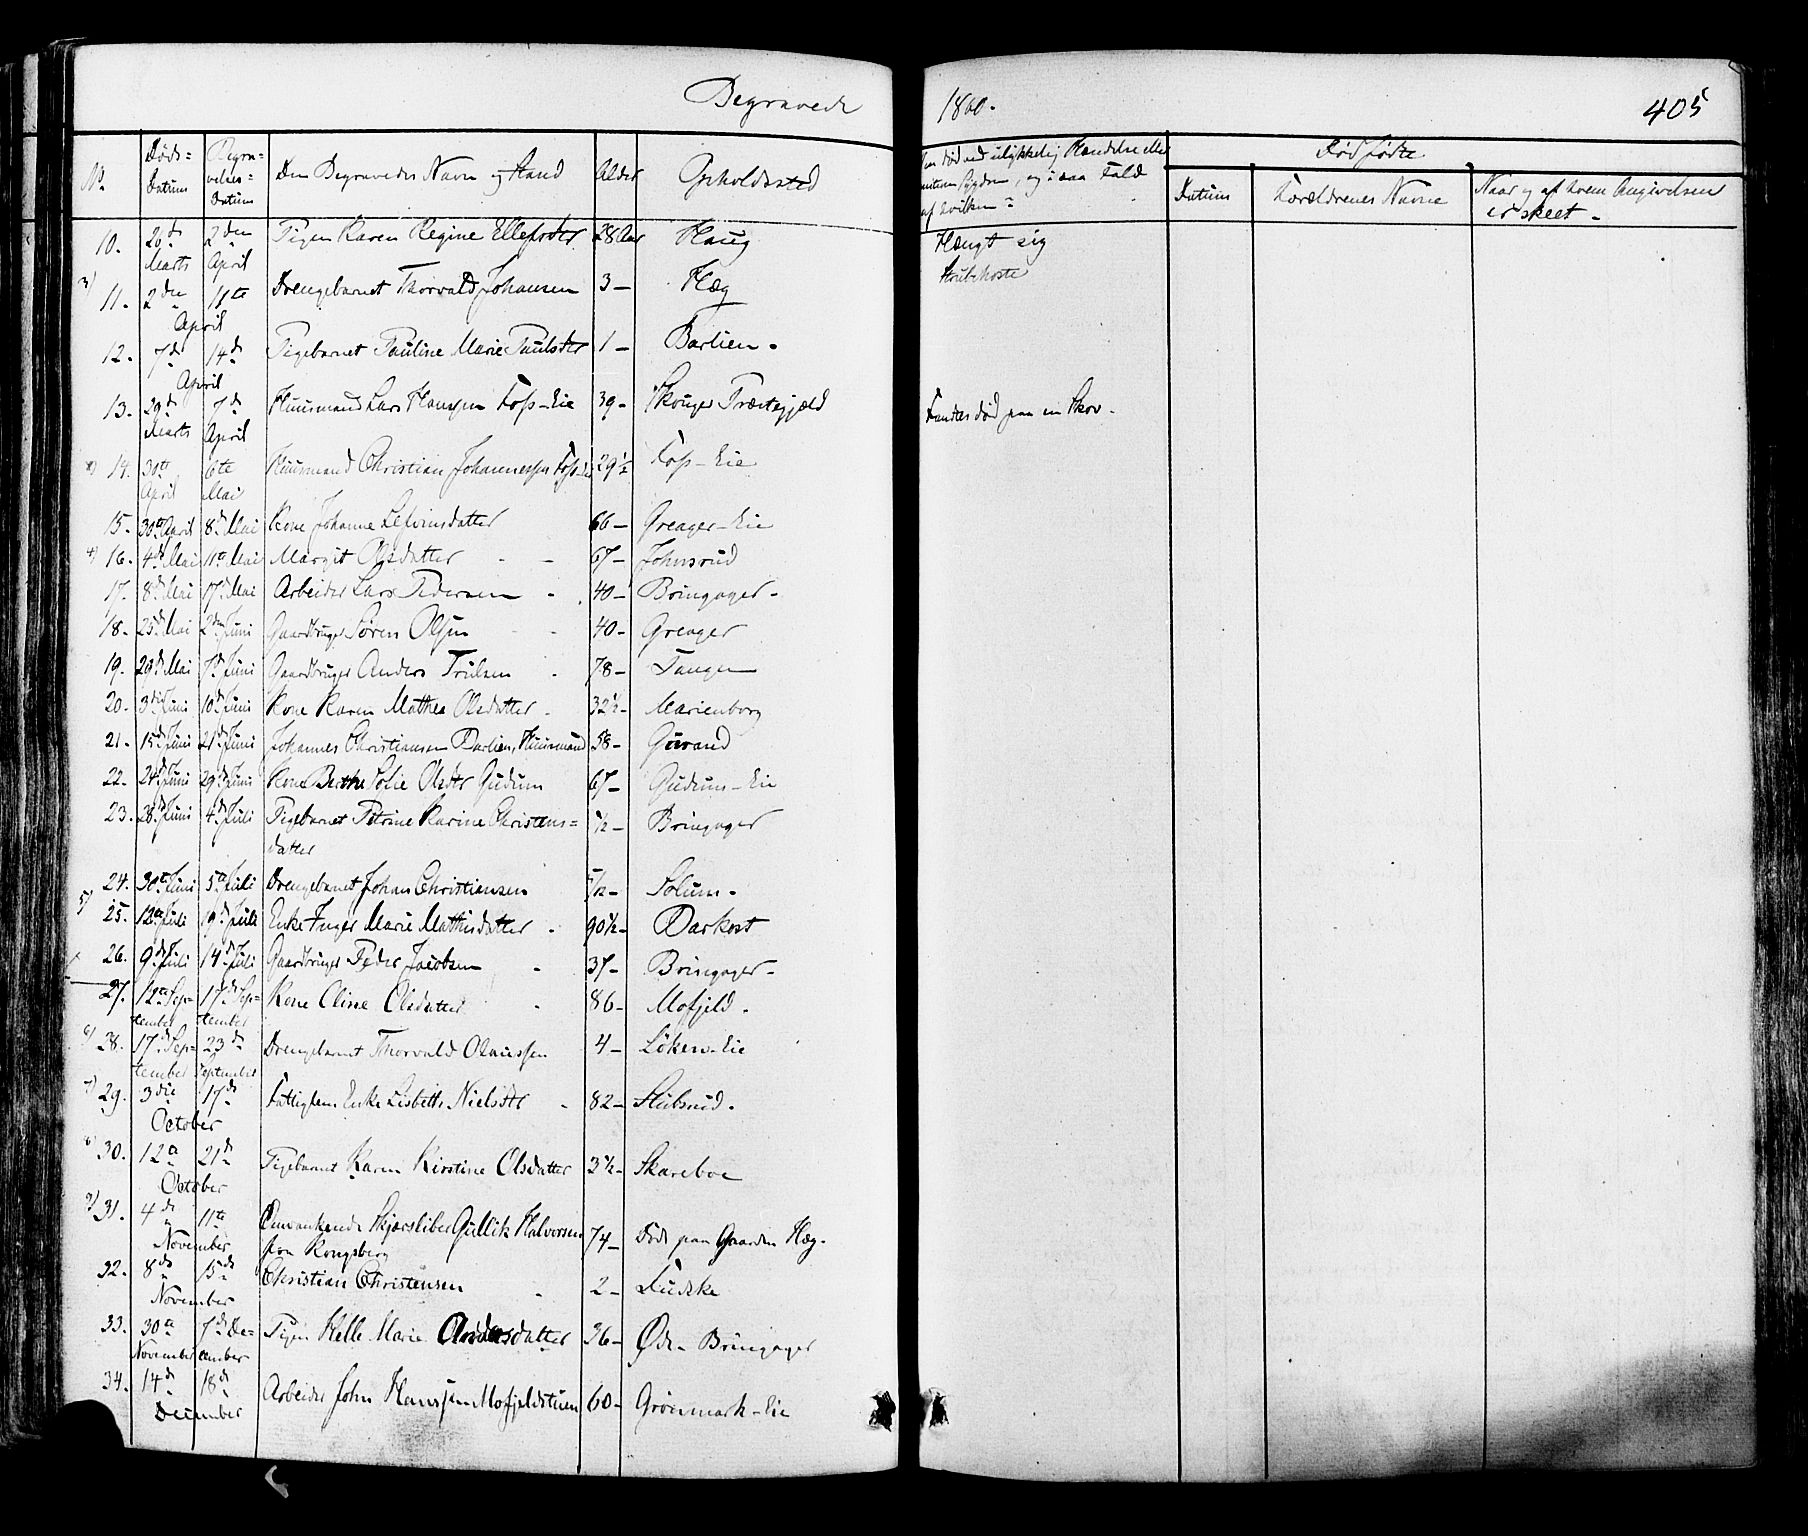 Begravede 1860. 405
No. Døds= Datum Begra= velses= Datum Den Begravedes Navn og Stand Alder Opholdssted Om død ved ulykkelig Hændelse eller Sygdom, og i saa Fald af hvilken Dødfødte
Datum Forældrenes Navne Naar og af hvem Angivelsen er skeet.
10. 26de Marts 2den April Pigen Karen Regine Ellefsdtr 28 Aar Haug Hængt sig
3) 11. 2den 11te April Drengebarnet Thorvald Johansen 3 — Hæg Strubehoste
12. 7de 14de April Pigebarnet Pauline Marie Paulsdtr 1 — Barlien.
13. 29de Marts 7de April Huusmand Lars Hanssen Fos-Eie 39 - Skouger Præstegjæld Fandtes død paa en Skov.
14. 30te April 6te Mai Huusmand Christian Johannessen 29½ Fos-Eie
15. 30te April 8de Mai Kone Johanne 66 — Greager-Eie
4) 16. 4de Mai 11te Mai Margit Olsdatter 67 - Johnsrud
17. 8de Mai 17de Mai Arbeider Lars Pedersen 40 - Bringager.
18. 25de Mai 2den Juni Gaardbruger Søren Olsen 40 - Greager
19. 29de Mai 7de Juni Gaardbruger Anders Trulsen 78 - Tangen
20. 3die Juni 10de Juni Kone Karen Mathea Olsdatter 32½ - Marienborg
21. 15de Juni 21de Juni Johannes Christiansen Barlien, Huusmand 58 -
22. 24de Juni 29de Juni Kone Berthe Sofie Olsdtr Gudum 67 - Gudum-Eie
23. 28de Juni 4de Juli Pigebarnet Petrine Karine Christens=
datter ½ — Bringager
24. 30te Juni 5te Juli Drengebarnet Johan Christiansen Solum.
5) 25. 12te Juli 19de Juli Enke Inger Marie Mathisdatter 90½ - Barkost
26. 9de Juli 14de Juli Gaardbruger Peder Jacobsen 37 - Bringager
27. 12te Sep= tember 17de Sep= tember Kone Oline Olsdatter 86 - Mofjeld.
6) 28. 17de Sep= tember 23de September Drengebarnet Thorvald Olaussen 4 - Løken-Eie
7) 29. 3die 17de October Fattiglem Enke Lisbeth Nielsdtr 82 - Stubsrud.
8) 30. 12te 21de October Pigebarnet Karen Kirstine Olsdatter 3½ - Skareboe
9) 31. 4de 11te November Omvankende Skjærsliber Gullik Halvorsen
fra Kongsberg 74 - Døde paa Gaarden Hæg.
32. 8de 15de November Christian Christensen 2 - Fudske
33. 30te November 7de De= cember Pigen Helle Marie Andersdatter 36 - Øde-Bringager
34. 14de 18de December Arbeider John Hanssen Mofjeldstuen 60 - Grønmark-Eie